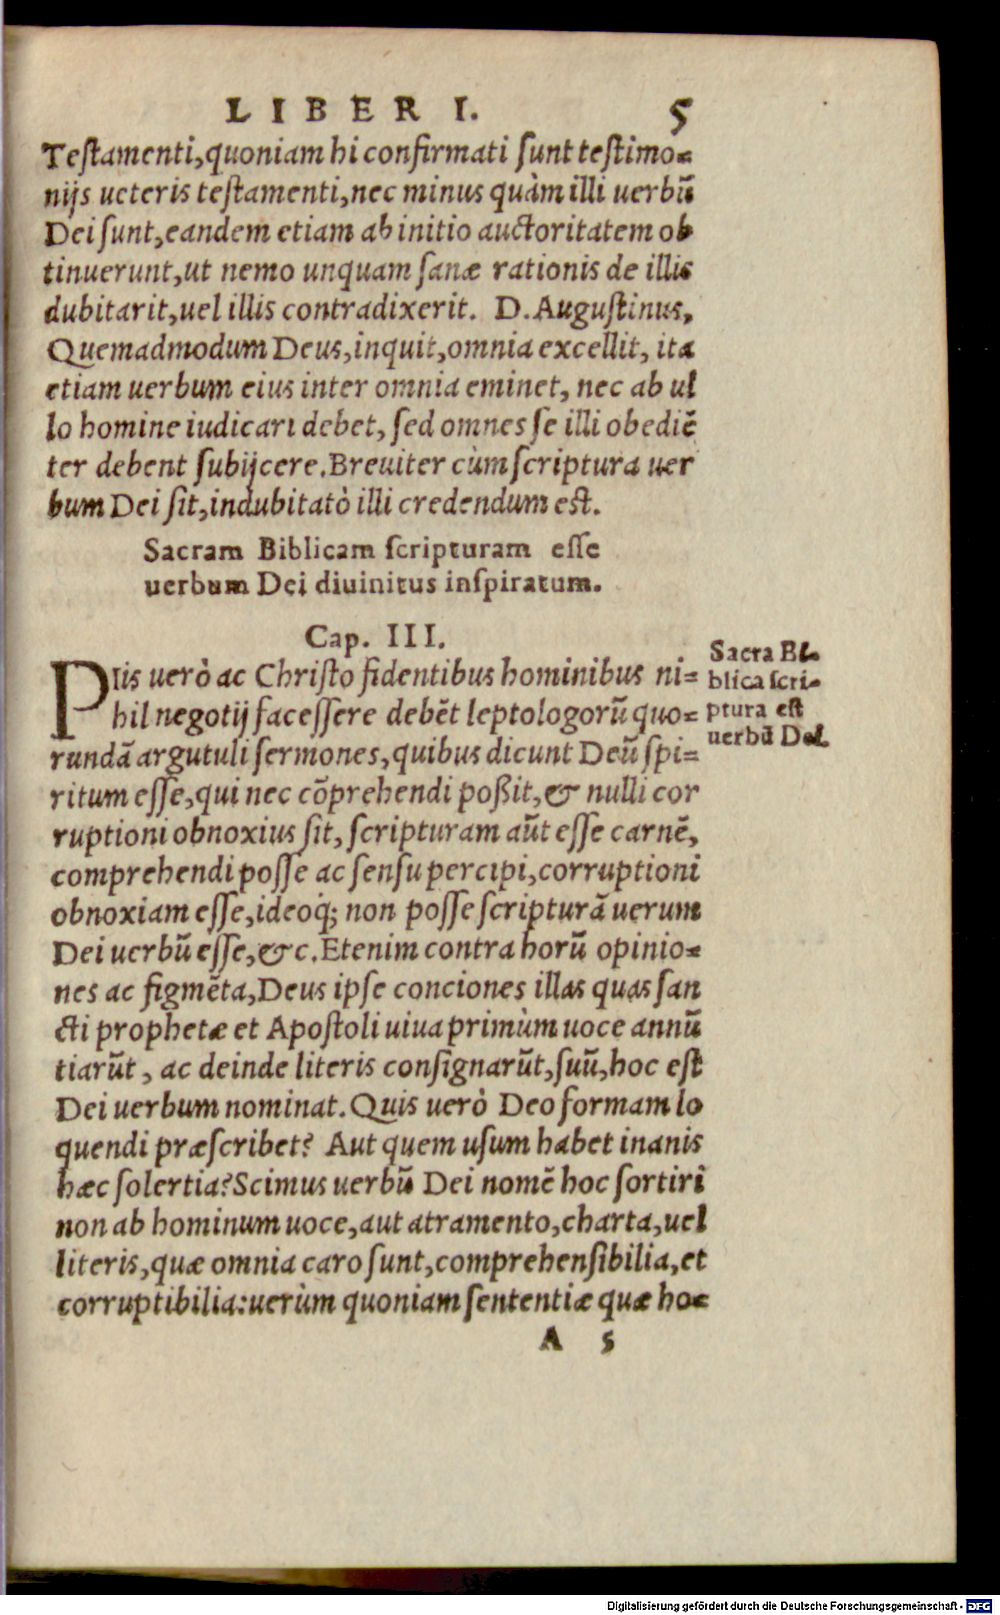 LIBER I. 5
Testamenti, quoniam hi confirmati sunt testimo=
nijs ueteris testamenti, nec minus quàm illi uerbū
Dei sunt, eandem etiam ab initio auctoritatem ob
tinuerunt, ut nemo unquam sanæ rationis de illis
dubitarit, uel illis contradixerit. D. Augustinus,
Quemadmodum Deus, inquit, omnia excellit, ita
etiam uerbum eius inter omnia eminet, nec ab ul
lo homine iudicari debet, sed omnes se illi obediē
ter debent subijcere. Breuiter cùm scriptura uer
bum Dei sit, indubitatò illi credendum est.
Sacram Biblicam scripturam esse
uerbum Dei diuinitus inspiratum.
Cap. III.
PIis uerò ac Christo fidentibus hominibus ni=
hil negotij facessere debēt leptologorū quo=
rundā argutuli sermones, quibus dicunt Deū spi=
ritum esse, qui nec cōprehendi poßit, & nulli cor
ruptioni obnoxius sit, scripturam aūt esse carnē,
comprehendi posse ac sensu percipi, corruptioni
obnoxiam esse, ideoq́; non posse scripturā uerum
Dei uerbū esse, &c. Etenim contra horū opinio=
nes ac figmēta, Deus ipse conciones illas quas san
cti prophetæ et Apostoli uiua primùm uoce annū
tiarūt, ac deinde literis consignarūt, suū, hoc est
Dei uerbum nominat. Quis uerò Deo formam lo
quendi præscribet? Aut quem usum habet inanis
hæc solertia? Scimus uerbū Dei nomē hoc sortiri
non ab hominum uoce, aut atramento, charta, uel
literis, quæ omnia caro sunt, comprehensibilia, et
corruptibilia: uerùm quoniam sententiæ quæ ho=
A 5
Sacra Bi=
blica scri=
ptura est
uerbū Dei.
Digitalisierung gefördert durch die Deutsche Forschungsgemeinschaft - DFG